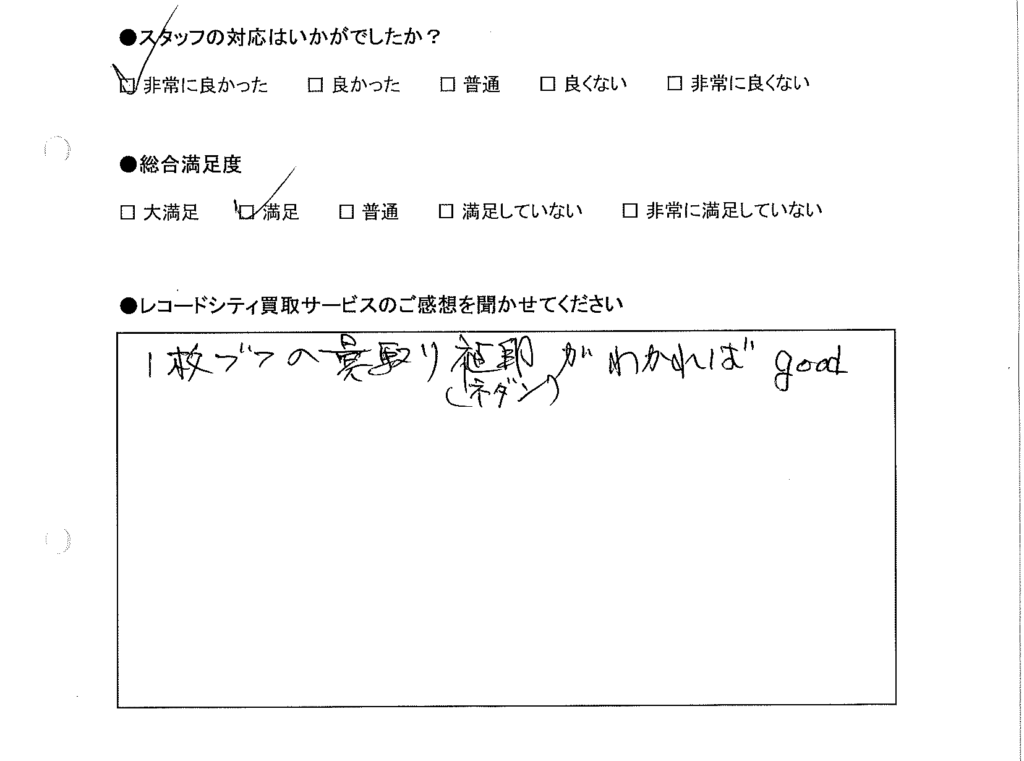 ●スタッフの対応はいかがでしたか？
☑ 非常に良かった □ 良かった □ 普通 □ 良くない □ 非常に良くない
●総合満足度
□ 大満足 ☑ 満足 □ 普通 □ 満足していない □ 非常に満足していない
●レコードシティ買取サービスのご感想を聞かせてください
1枚ブツの買取り値段がわかれば good
(ネダン)